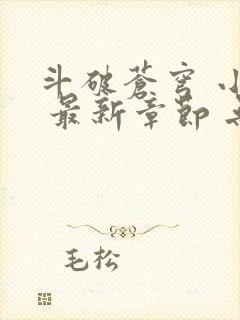 斗破苍穹
最新章節
毛松